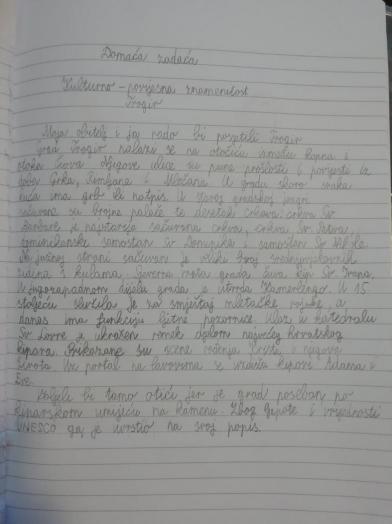 Domaća zadaća
Kulturno-povijesna znamenitost
Trogir
Moja obitelj i ja rado bi posjetili Trogir
grad Trogir nalazi se na otočiću između kopna i
otoka Čiova. Njegove ulice su pune prošlosti i povijesti iz
doby Grka, Rimljana i Mlečana. U gradu skoro svaka
kuća ima grb ili natpis. U staroj gradskoj jezgri
sačuvane su brojne palače te desetak crkava crkva Sv
Barbare je najstarija sačuvana crkva, crkva Sv Petra,
dominikanski samostan Sv Dominika i samostan Sv Nikole.
Na južnoj strani sačuvani je veliki broj srednjovjekovnih
zidina i kulama. Sjeverna vrata grada čuva kip Sv Ivana,
U jugozapadnom dijelu grada je utvrda Kamerlengo. U 15
stoljeću služila je za smještaj mletačke vojske, a
danas ima funkciju ljetne pozornice. Ulaz u katedralu
Sv Lovre je ukrašen romek djelom najvećeg hrvatskog
kipara. Prikazane su scene rođenja Krista i njegova
života. Uz portal na lavovima se nalaze kipovi Adama i
Eve.
Voljeli bi tamo otići jer je grad poseban po
kiparskom umijeću na kamenu. Zbog ljepote i vrijednosti
UNESCO ga je uvrstio na svoj popis.